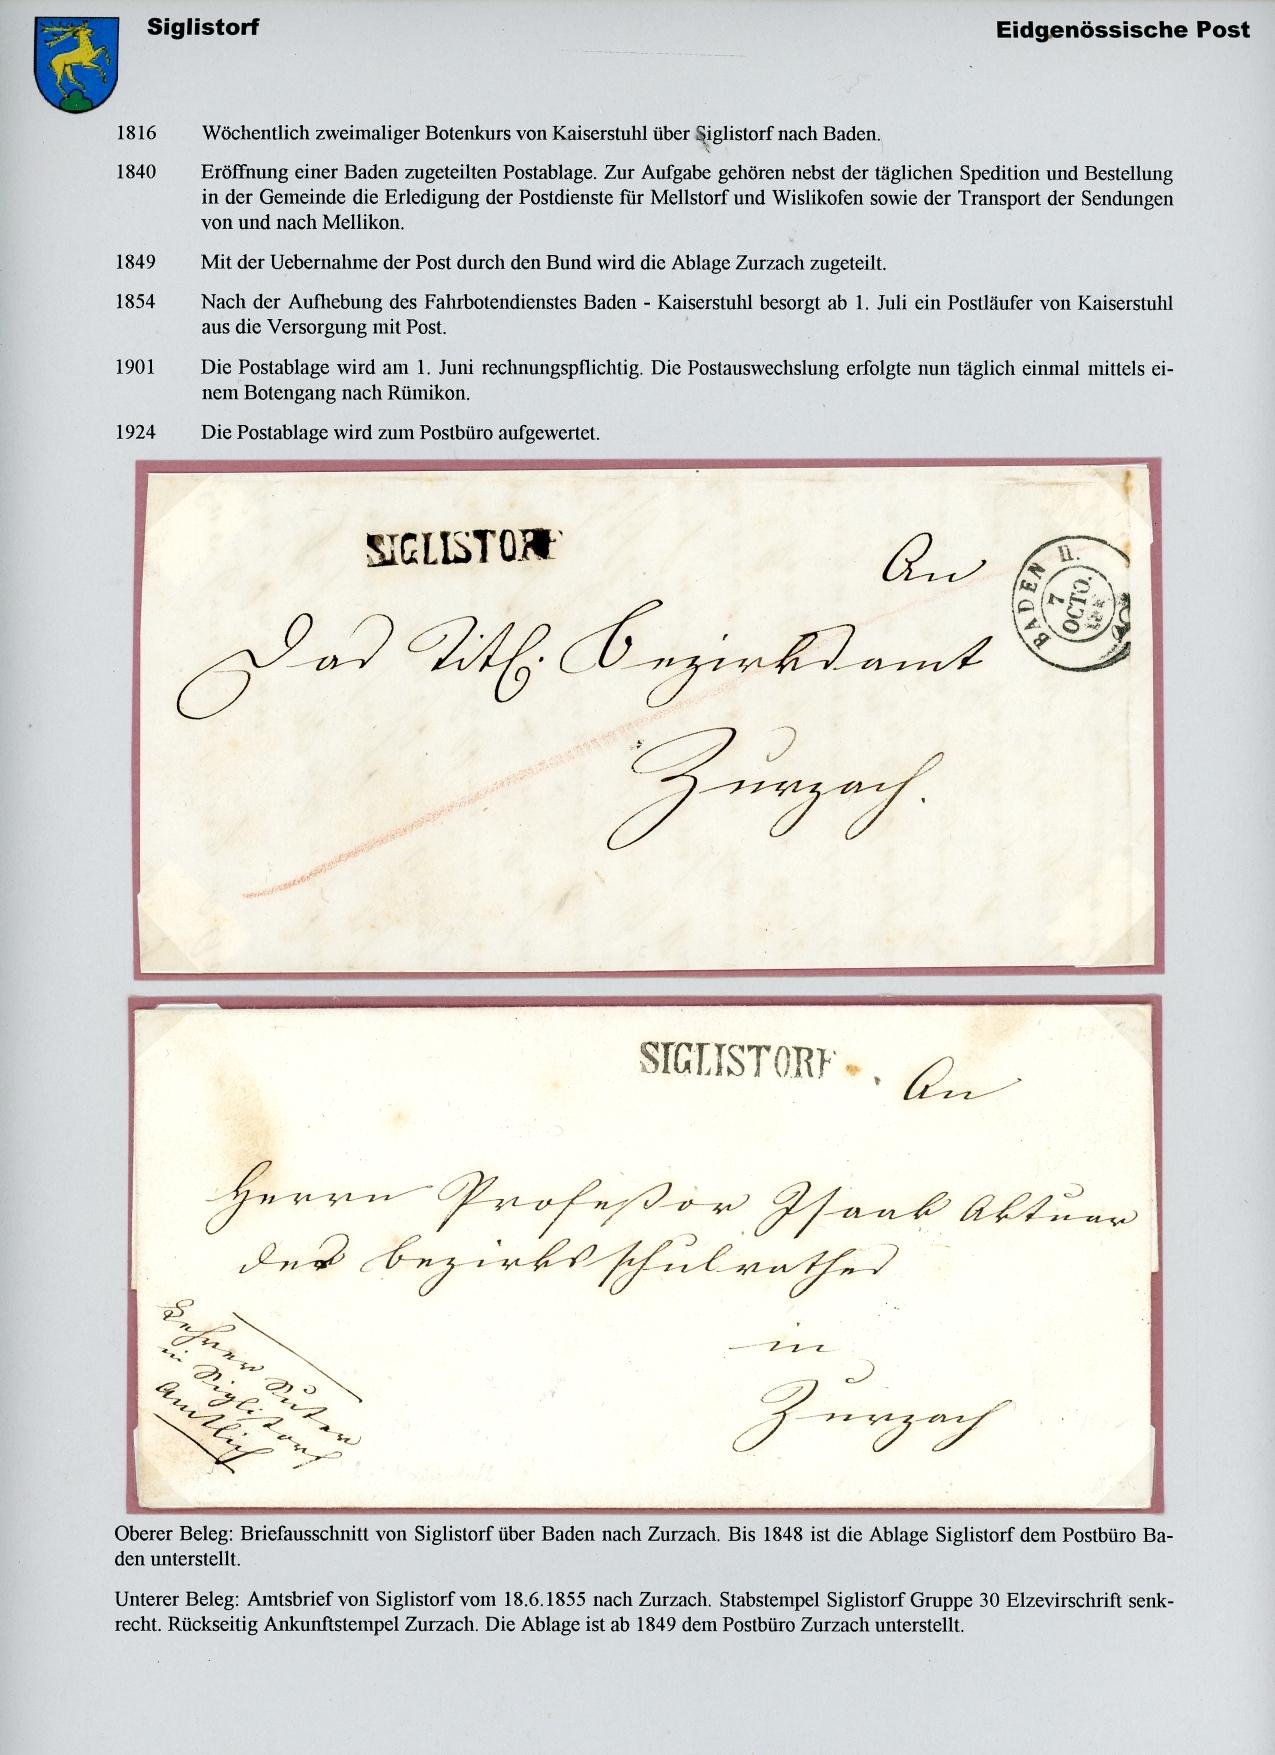 Siglistorf
Eidgenössische Post
1816 Wöchentlich zweimaliger Botenkurs von Kaiserstuhl über Siglistorf nach Baden.
1840 Eröffnung einer Baden zugeteilten Postablage. Zur Aufgabe gehören nebst der täglichen Spedition und Bestellung
in der Gemeinde die Erledigung der Postdienste für Mellstorf und Wislikofen sowie der Transport der Sendungen
von und nach Mellikon.
1849 Mit der Uebernahme der Post durch den Bund wird die Ablage Zurzach zugeteilt.
1854 Nach der Aufhebung des Fahrbotendienstes Baden - Kaiserstuhl besorgt ab 1. Juli ein Postläufer von Kaiserstuhl
aus die Versorgung mit Post.
1901 Die Postablage wird am 1. Juni rechnungspflichtig. Die Postauswechslung erfolgte nun täglich einmal mittels ei-
nem Botengang nach Rümikon.
1924 Die Postablage wird zum Postbüro aufgewertet.
SIGLISTORF
An
BADEN
7
OCTO.
Das Titl. Bezirksamt
Zurzach.
SIGLISTORF
An
Herrn Profeßor Isaak Aktuar
des Bezirksschulrathes
in
Zurzach
Lehrer Suter
in Siglistorf
Amtlich
Oberer Beleg: Briefausschnitt von Siglistorf über Baden nach Zurzach. Bis 1848 ist die Ablage Siglistorf dem Postbüro Ba-
den unterstellt.
Unterer Beleg: Amtsbrief von Siglistorf vom 18.6.1855 nach Zurzach. Stabstempel Siglistorf Gruppe 30 Elzevirschrift senk-
recht. Rückseitig Ankunftstempel Zurzach. Die Ablage ist ab 1849 dem Postbüro Zurzach unterstellt.